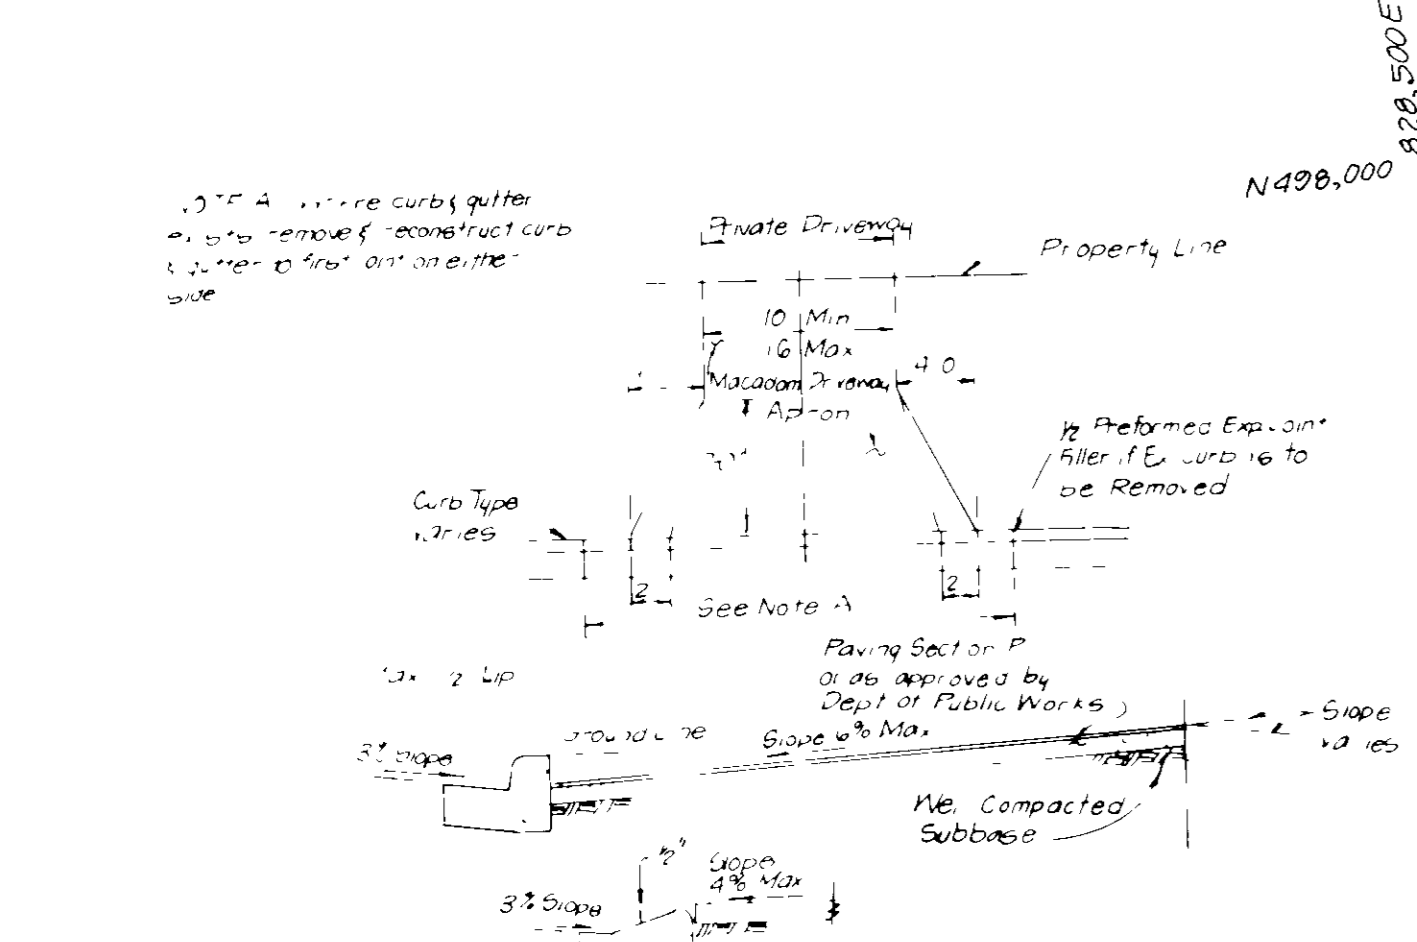 828,500E
N498,000
curb & gutter
remove & reconstruct curb
to first on either
side
Private Driveway
Property Line
10 Min
16 Max
4 0
Macadam Driveway
Apron
1/2 Preformed Exp. Joint
Filler if Ex Curb is to
be Removed
Curb Type
varies
2
2
See Note A
Paving Section P
or as approved by
Dept of Public Works )
Max 1/2 Lip
Slope
varies
Ground Line
Slope 6% Max.
3% Slope
Compacted
Subbase
1/2"
Slope
4% Max
3% Slope